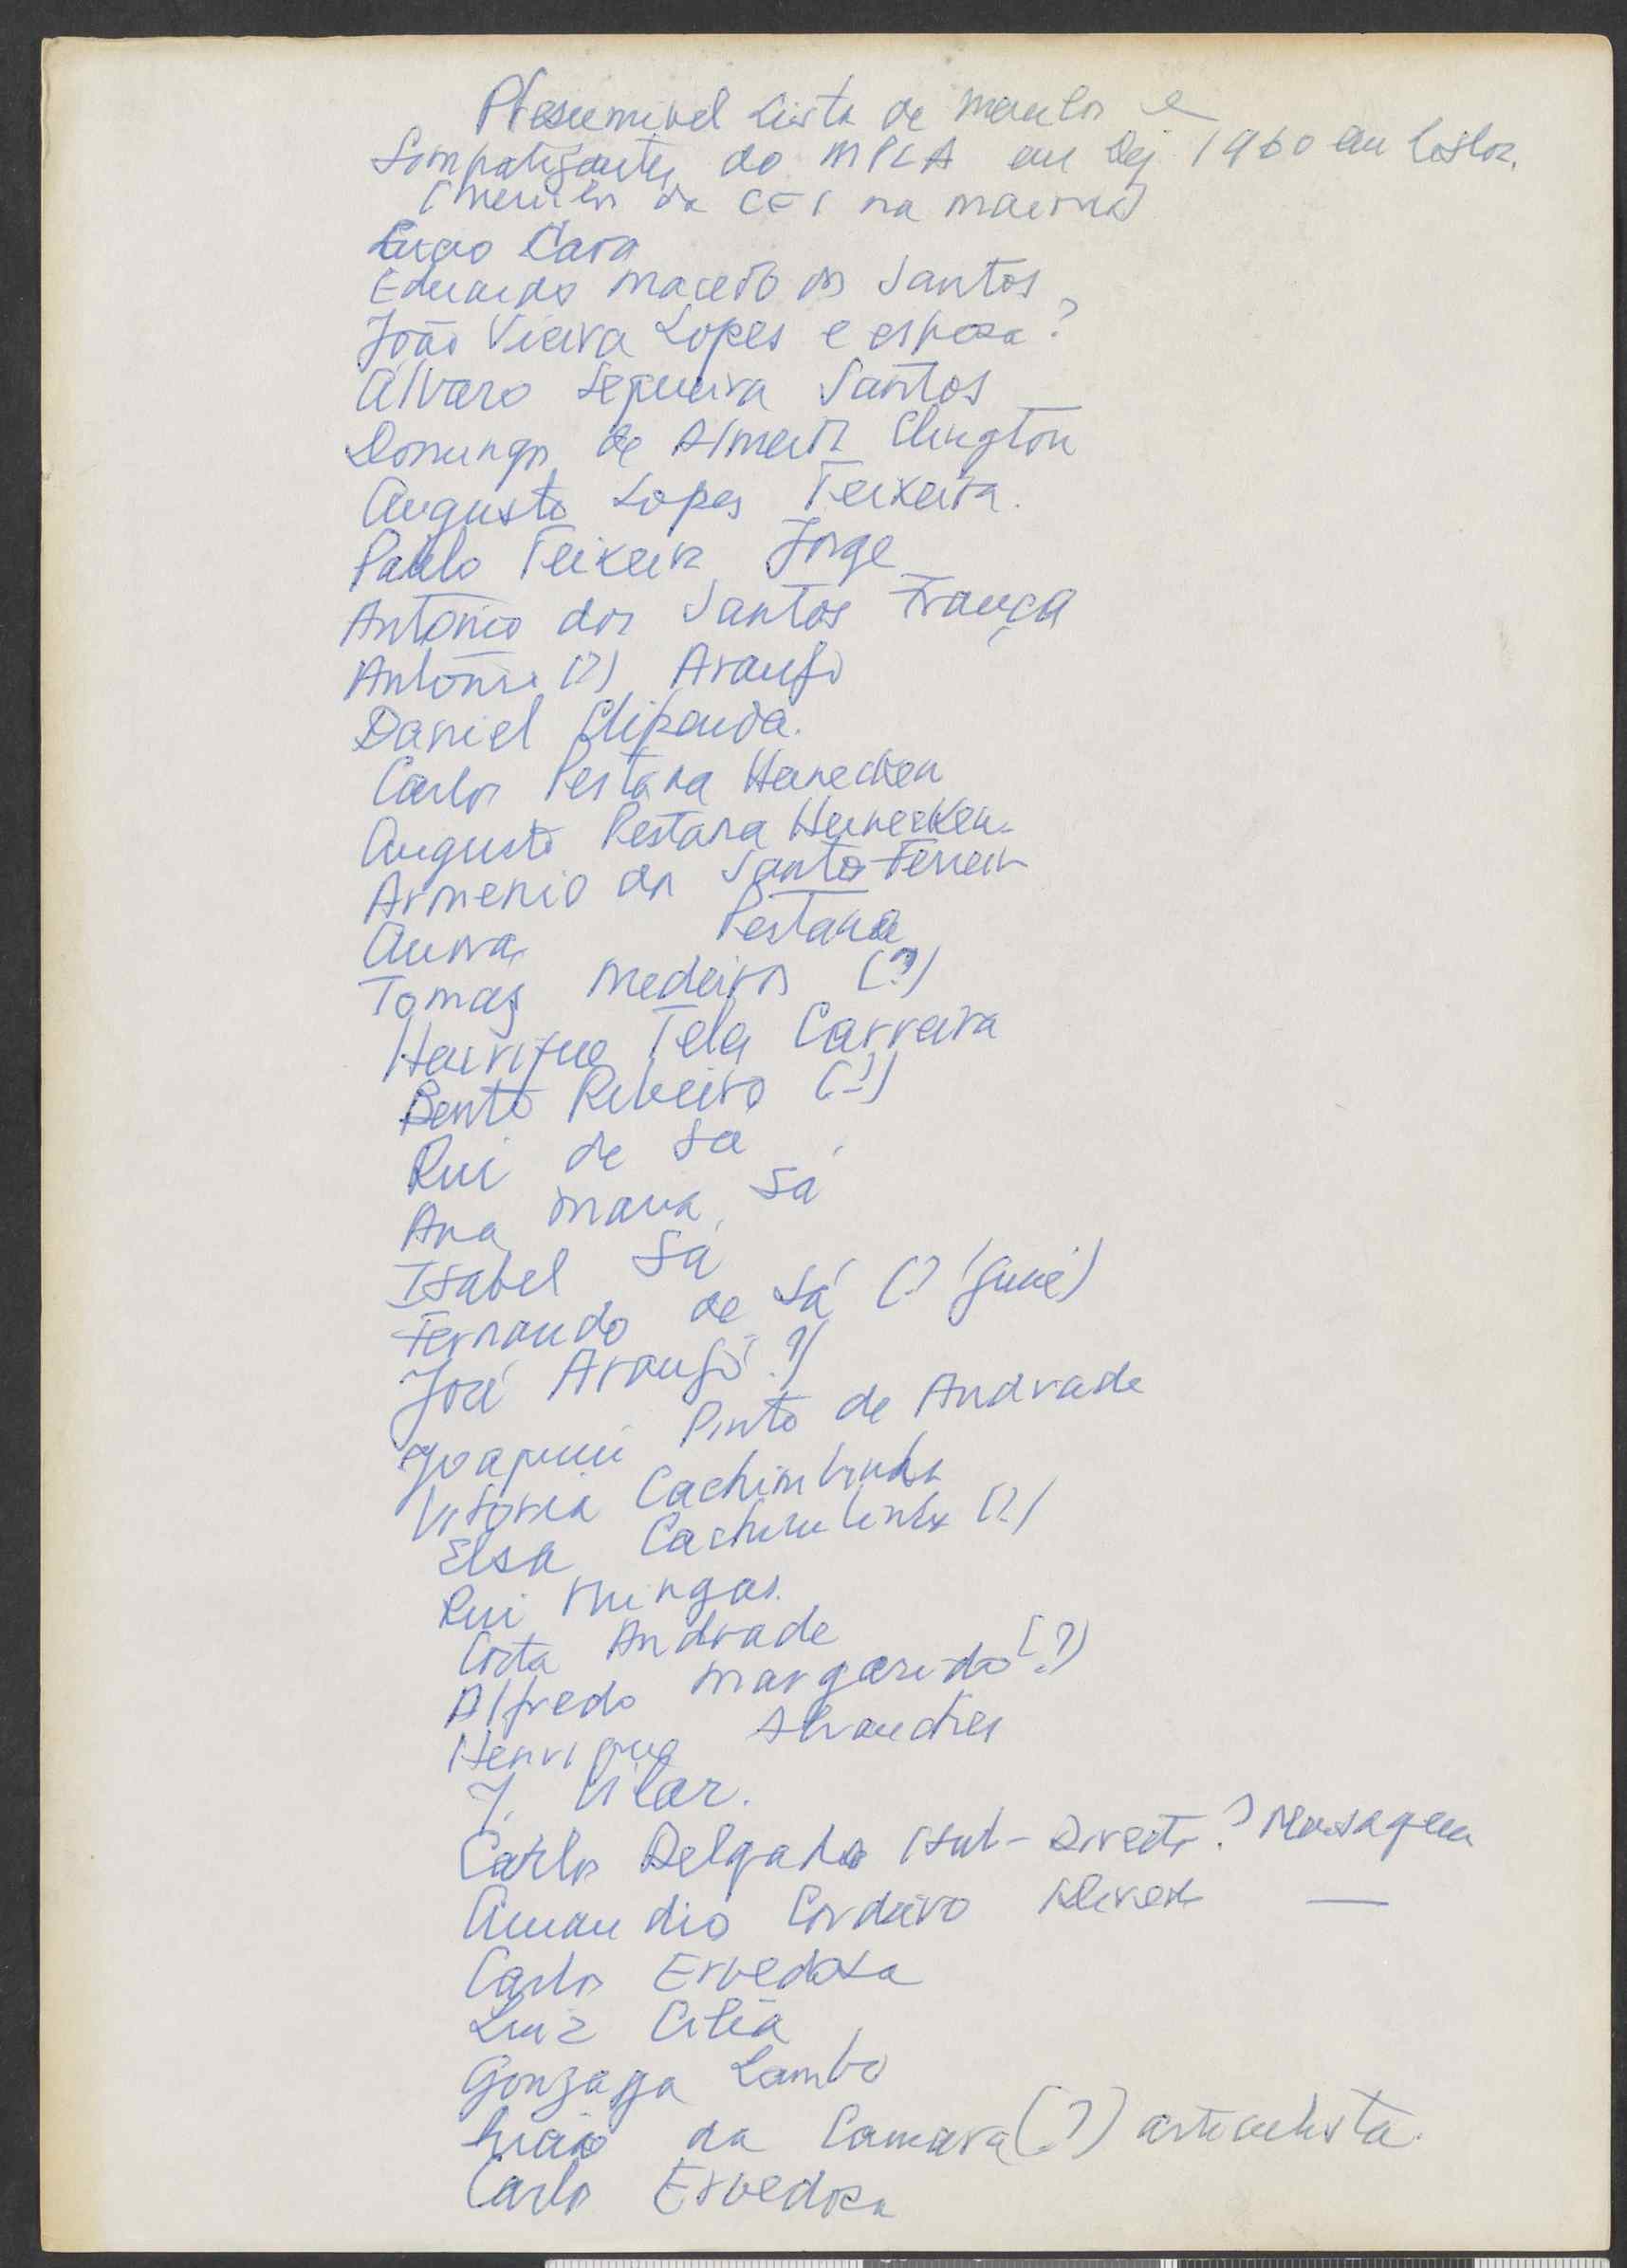 Presumivel Lista de membros e
Simpatizantes do MPLA em Dez 1960 em Lisboa.
(membros da CEI na maioria)
Lucio Lara
Eduardo Macedo dos Santos
João Vieira Lopes e esposa?
Álvaro Sequeira Santos
Domingos de Almeida Clington
Augusto Lopes Teixeira.
Paulo Teixeira Jorge
António dos Santos França
António (?) Araujo
Daniel Chipenda.
Carlos Pestana Heinecken
Augusto Pestana Heinecken
Armenio dos Santos Ferreira
Aurora Pestana
Tomaz Medeiros (?)
Henrique Teles Carreira
Bento Ribeiro (?)
Rui de Sá
Ana Maria Sá
Isabel Sá
Fernando de Sá (? Guiné)
José Araujo ?)
Joaquim Pinto de Andrade
Vitoria Cachimbinha
Elsa Cachimbinha (?)
Rui Mingas.
Costa Andrade
Alfredo Margarido (?)
Henrique Abranches
J. Vilar.
Carlos Delgado (sub-Director? Mensagem
Amandio Cordeiro —
Carlos Ervedosa
Luiz Cília
Gonzaga Lambo
da Camara (?) articulista.
Carlos Ervedosa